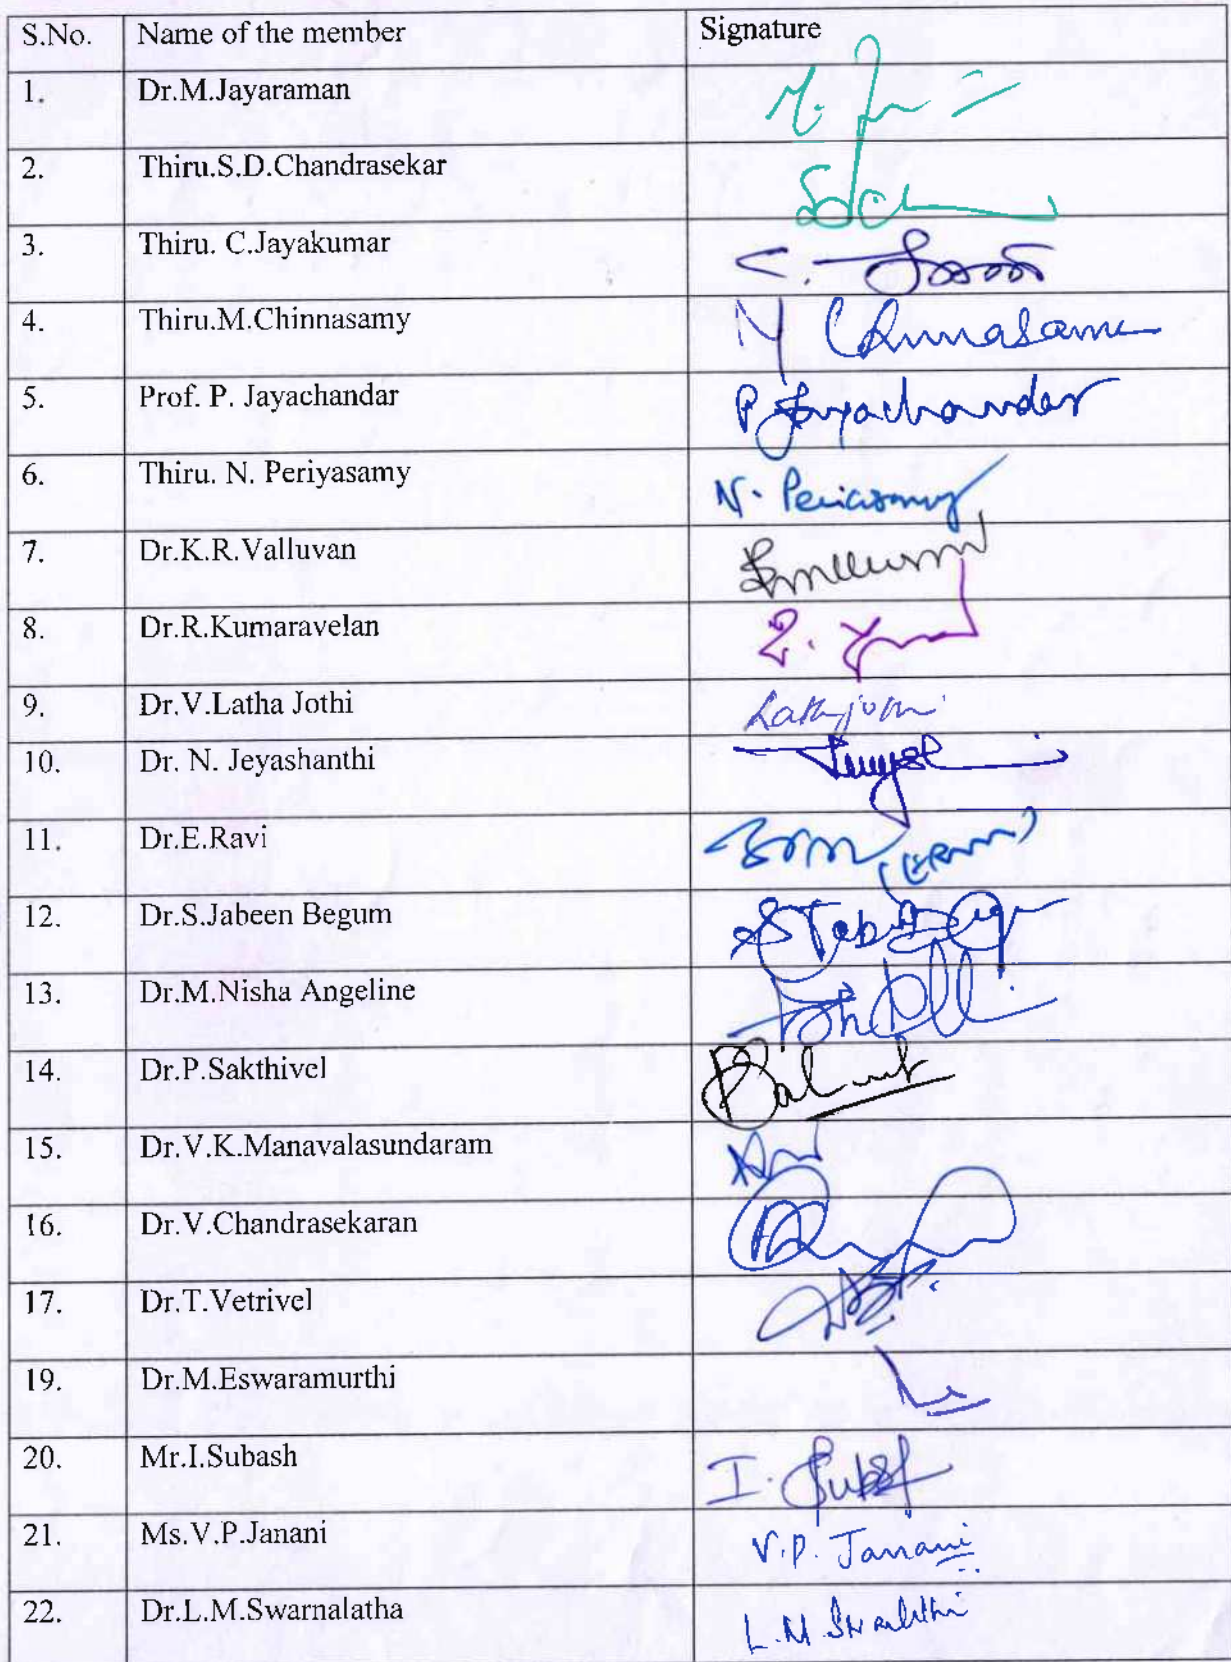 S.No. Name of the member Signature
1. Dr.M.Jayaraman
2. Thiru.S.D.Chandrasekar
3. Thiru. C.Jayakumar
4. Thiru.M.Chinnasamy M Chinnasamy
5. Prof. P. Jayachandar P Jayachandar
6. Thiru. N. Periyasamy N. Periasamy
7. Dr.K.R.Valluvan
8. Dr.R.Kumaravelan
9. Dr.V.Latha Jothi
10. Dr. N. Jeyashanthi
11. Dr.E.Ravi
12. Dr.S.Jabeen Begum
13. Dr.M.Nisha Angeline
14. Dr.P.Sakthivel
15. Dr.V.K.Manavalasundaram
16. Dr.V.Chandrasekaran
17. Dr.T.Vetrivel
19. Dr.M.Eswaramurthi
20. Mr.I.Subash I.
21. Ms.V.P.Janani V.P. Janani
22. Dr.L.M.Swarnalatha L.M